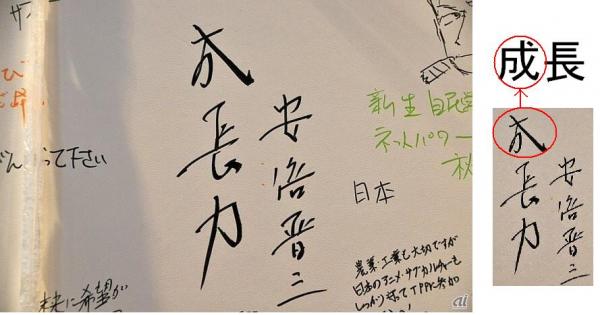 成長力
安倍晋三
新生自民党
ネットパワー
日本
って下さい
農業、工業も大切ですが
日本のアニメ・サブカルチャーも
しっかり守ってTPPに参加
未来に希望が
成長
成長力
安倍晋三